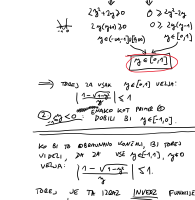 2y²+2y≥0 0≥2y²-2y
2y(y+1)≥0 0≥2y(y-1)
y∈[0,1]
y∈[0,1]
⟹ TOREJ ZA VSAK y∈[0,1] VELJA:
| (1-√(1-y²))/y | ≤ 1
② y<0: ENAKO KOT
DOBILI BI y∈[-1,0].
KO BI TO OBRAVNAVO KONČALI, BI TOREJ
VIDELI, DA ZA VSE y∈[-1,1], y≠0
VELJA: | (1-√(1-y²))/y | ≤ 1.
TOREJ JE TA IZRAZ INVERZ FUNKCIJE